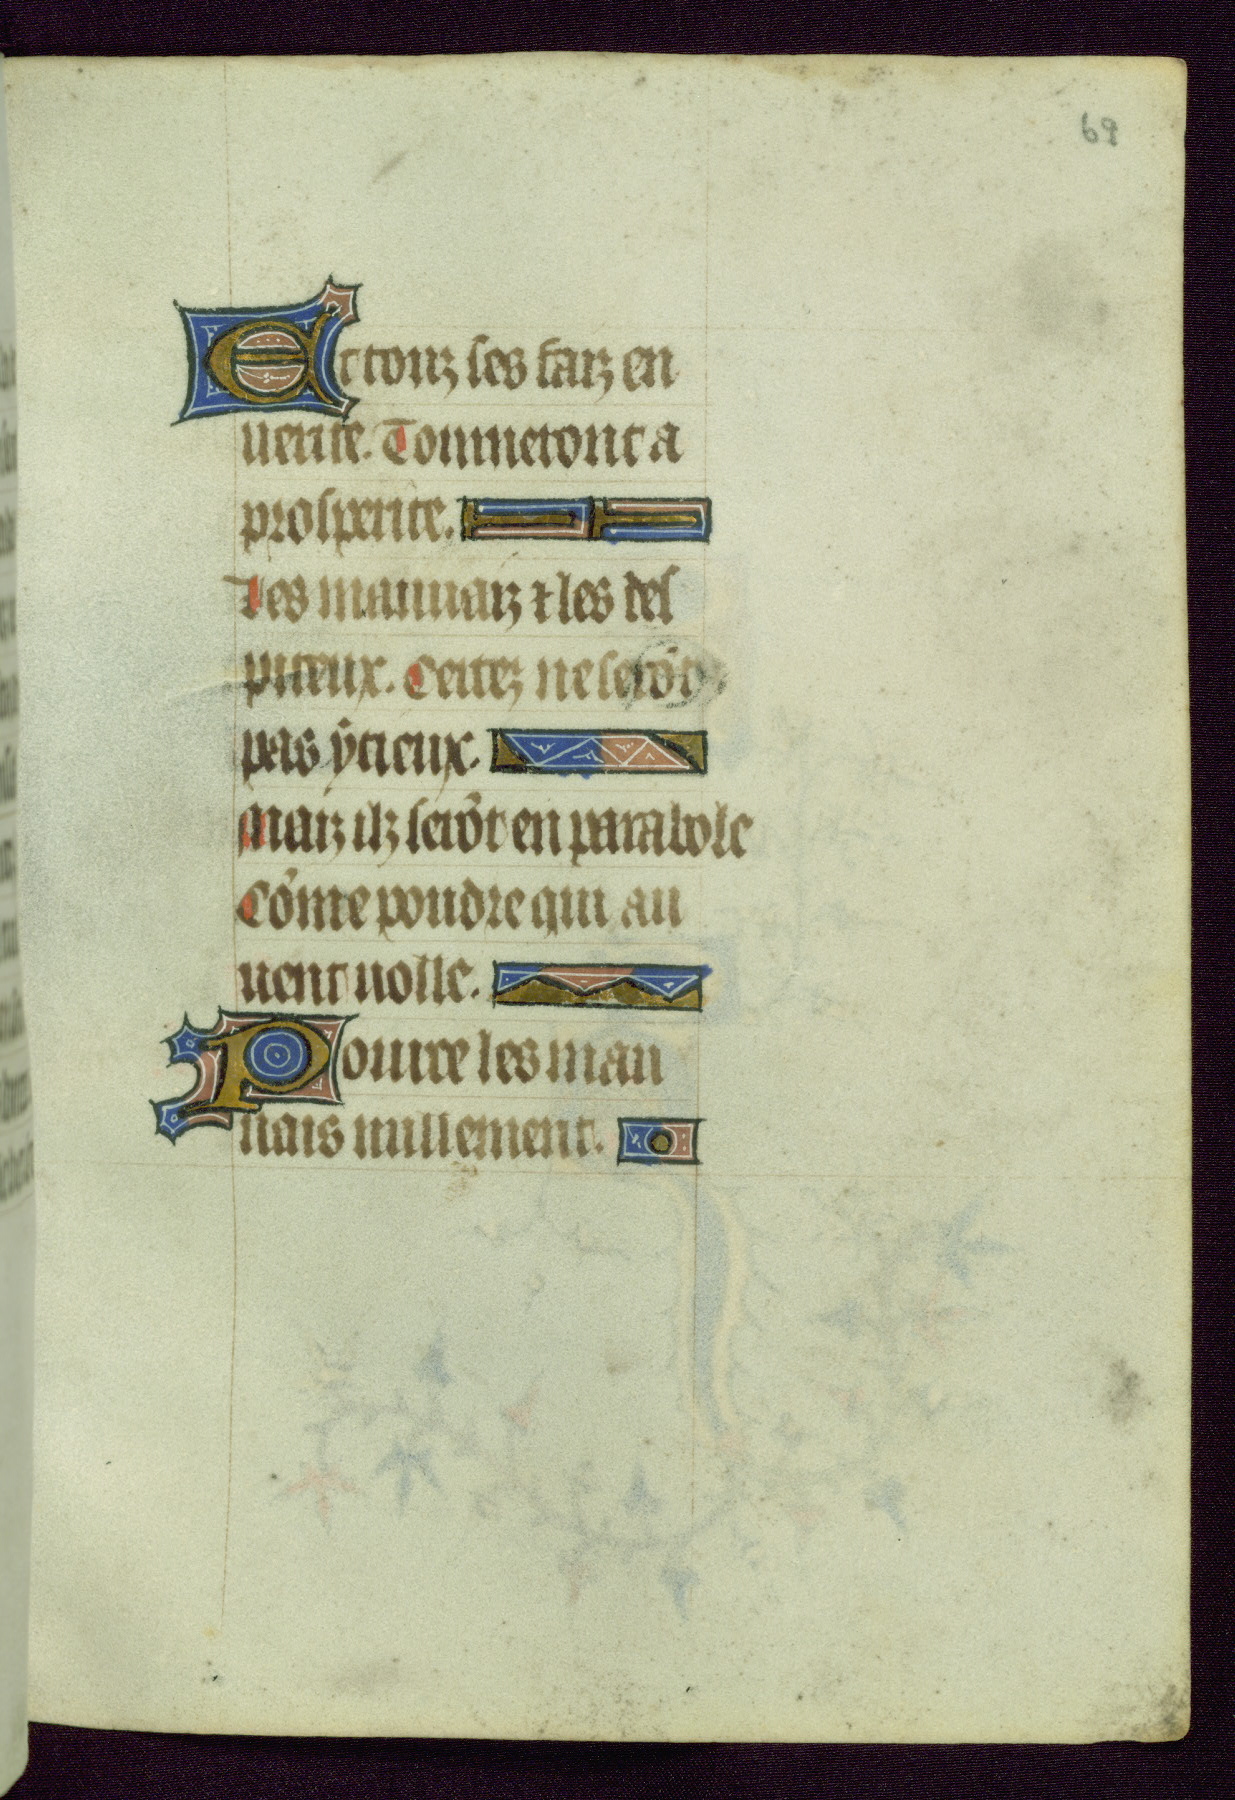 69
Et touz ses faiz en
verite. Tourneront a
prosperite.
Les mauuaiz ⁊ les des
piteux. Certez ne serōt
pas ytieux.
Maiz ilz serōt en parabole
Cōme poudre qui au
uent uolle.
Pource les mau
uais nullement.